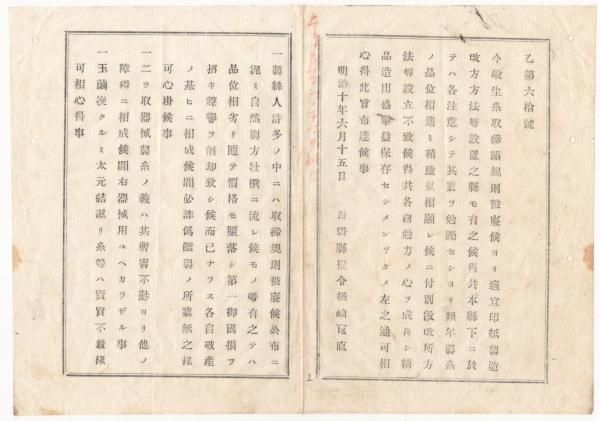 乙第六拾號
今般生糸取締諸規則被廢候ヨリ適宜印紙製造
改方方法等設置之縣モ有之候得共本縣下ニ於
テハ各注意シテ其業ヲ勉勵セシヨリ頻年製糸
ノ品位相進ミ稍聲價相顯レ候ニ付別段改所方
法等設立不致候得共各自勉力ノ心ヲ成長シ精
品造出盛擧益保存セシメンガタメ左之通可相
心得此旨布達候事
明治十年六月十五日
長野縣權令楢崎寛直
一製絲人許多ノ中ニハ取締規則被廢候公布ニ
泥ミ自然製方杜撰ニ流レ候モノ等有之テハ
品位相劣リ隨テ價格モ墮落シ第一御國損ヲ
招キ聲譽ヲ削却致シ候而已ナラス各自破產
ノ基ヒニ相成候間必詐僞濫製ノ所業無之樣
可心掛候事
一二ツ取器械製糸ノ義ハ其弊害不尠ヨリ他ノ
障碍ニ相成候間右器械用ユヘカラザル事
一玉繭挽クルミ太元結濕リ糸等ハ賣買不致樣
可相心得事
1